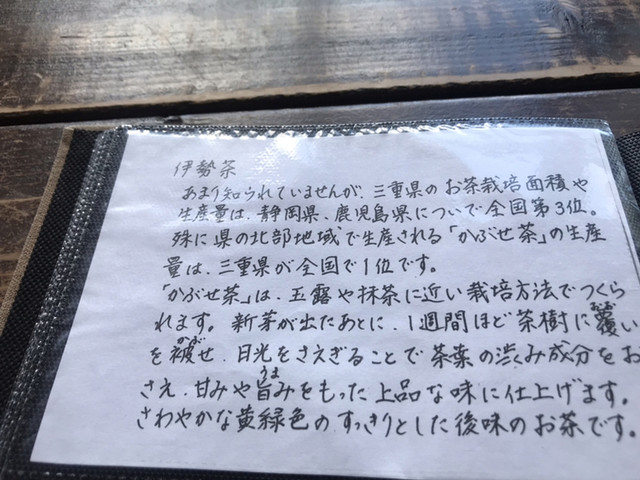 伊勢茶
あまり知られていませんが、三重県のお茶栽培面積や
生産量は、静岡県、鹿児島県についで全国第3位。
殊に県の北部地域で生産される「かぶせ茶」の生産
量は、三重県が全国で1位です。
「かぶせ茶」は、玉露や抹茶に近い栽培方法でつくら
れます。新芽が出たあとに、1週間ほど茶樹に覆い
おお
を被せ、日光をさえぎることで茶葉の渋み成分をお
かぶ
さえ、甘みや旨みをもった上品な味に仕上げます。
うま
さわやかな黄緑色のすっきりとした後味のお茶です。